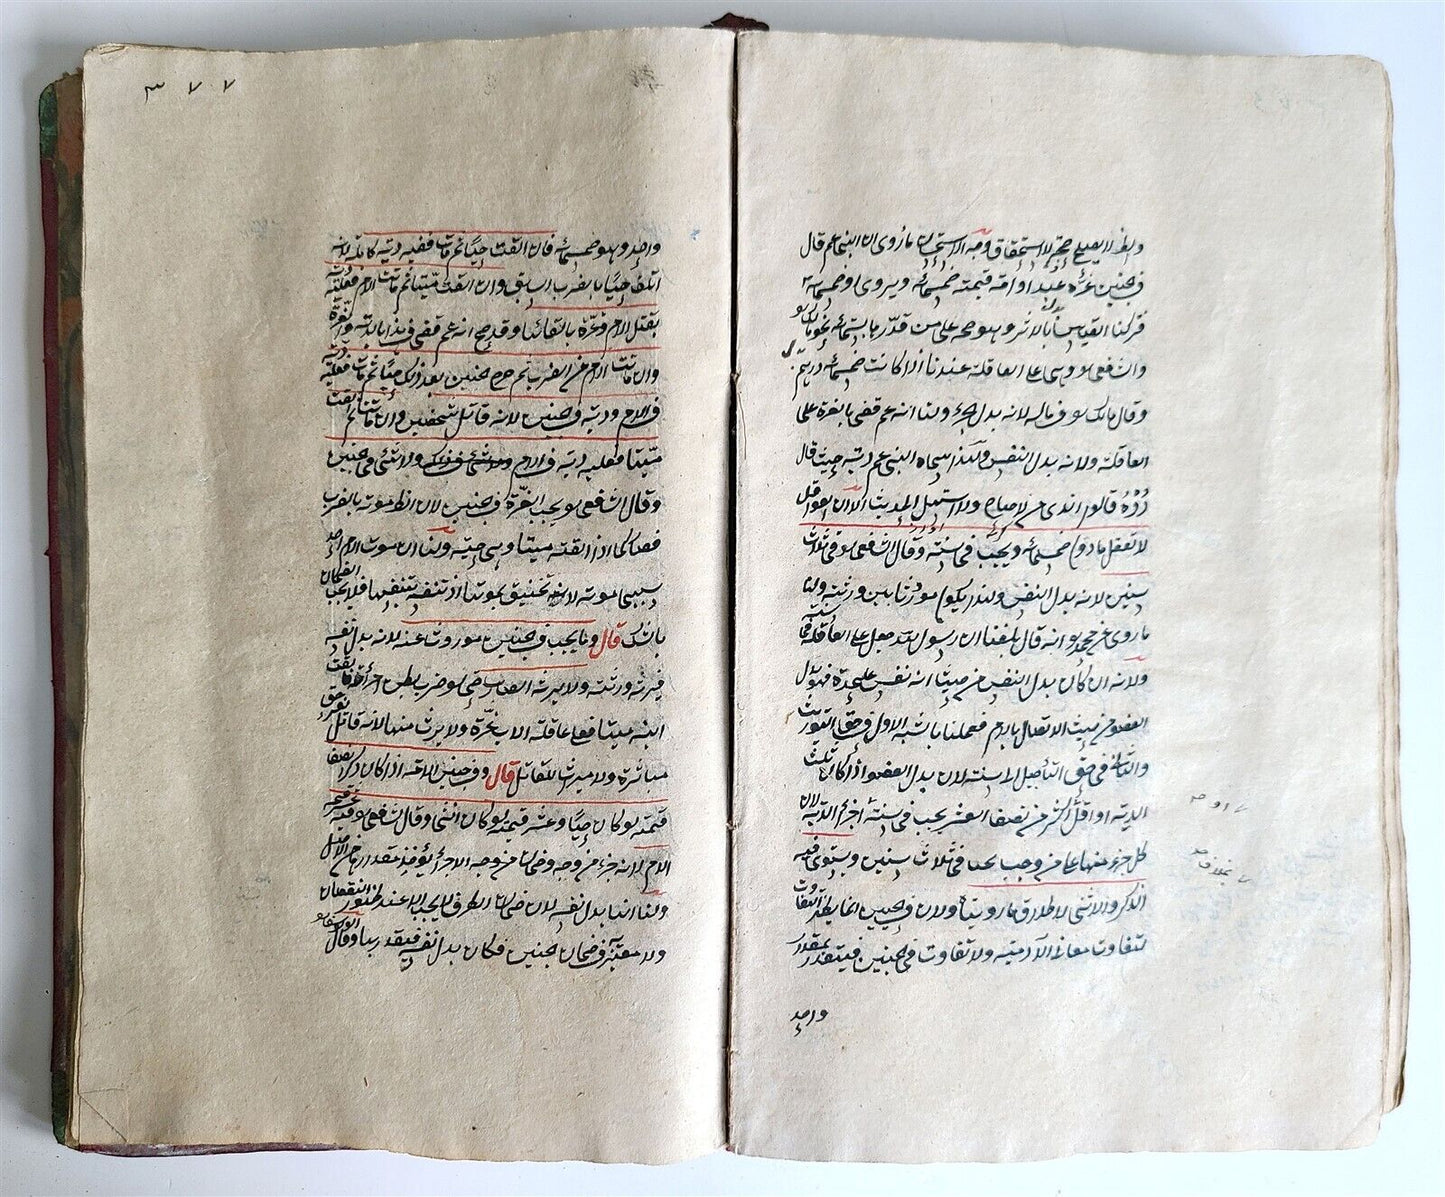 والظاهر لا يصلح حجة للاستحقاق وجه الاستحسان ما روى ان النبى عم قال
فى الجنين غرة عبد او امة قيمته خمسمائة ويروى او خمسمائة
فتركنا القياس بالاثر وهو حجة على من قدرها بستمائة نحو مالك و
والشافعى وهى على العاقلة عندنا اذا كانت خمسمائة درهم
وقال مالك هو فى ماله لانه بدل الجزء ولنا انه عم قضى بالغرة على
العاقلة ولانه بدل النفس ولهذا سماه النبى عم دية حيث قال
دوه قالوا اندى من لا صاح ولا استهل الحديث الا ان العواقل
لا تعقل ما دون خمسمائة ويجب فى سنة وقال الشافعى هو فى ثلاث
سنين لانه بدل النفس ولهذا يكون موروثا بين ورثته ولنا
ما روى عن محمد انه قال بلغنا ان رسول الله جعل على العاقلة فى سنة
ولانه ان كان بدل النفس من حيث انه نفس عليحدة فهو بدل
العضو من حيث الاتصال بالام فعملنا بالشبه الاول فى حق التوريث
والثانى فى حق التأجيل الى سنة لان بدل العضو اذا كان ثلث
الدية او اقل اكثر من نصف العشر يجب فى سنة اجزاء الدية لان
كل جزء منها على من وجب يجب فى ثلاث سنين ويستوى فيه
الذكر والانثى لاطلاق ما روينا ولان فى الحيين انما يظهر التفاوت
لتفاوت معانى الآدمية ولا تفاوت فى الجنين فيتقدر بمقدار
واحد
٣٧٧
واحد وهو خمسمائة فان القت حيا ثم مات ففيه دية كاملة لانه
اتلف حيا بالضرب السابق وان القت ميتا ثم ماتت الام فعليه دية
بقتل الام وغرة بالقائها وقد صح انه عم قضى فى هذا بالدية والغرة
وان ماتت الام من الضرب ثم خرج الجنين بعد ذلك حيا ثم مات فعليه دية
فى الام ودية فى الجنين لانه قاتل شخصين وان ماتت ثم القت
ميتا فعليه دية فى الام ولا شئ فى الجنين
وقال الشافعى هو يجب الغرة فى الجنين لان الظ موته بالضرب
فصار كما اذا القته ميتا وهى حية ولنا ان موت الام احد
سببى موته لانه تختنق بموتها اذ تنفسه بتنفسها فلا يجب الضمان
بالشك قال وما يجب فى الجنين موروث عنه لانه بدل نفسه
فيرثه ورثته ولا يرثه الضارب حتى لو ضرب بطن امرأته فالقت
ابنه ميتا فعلى عاقلة الاب غرة ولا يرث منها لانه قاتل بغير حق
مباشرة ولا ميراث للقاتل قال وفى جنين الامة اذا كان ذكرا نصف
قيمته لو كان حيا وعشر قيمته لو كان انثى وقال الشافعى هو فيه عشر قيمة
الام لانه جزء من وجه وضمان الاجزاء يؤخذ مقدارها من الاصل
ولنا انه بدل نفسه لان ضمان الطرف لا يجب الا عند ظهور النقصان
ولا معتبر فى ضمان الجنين فكان بدل نفسه فيقدر بها وقال ابو يوسف